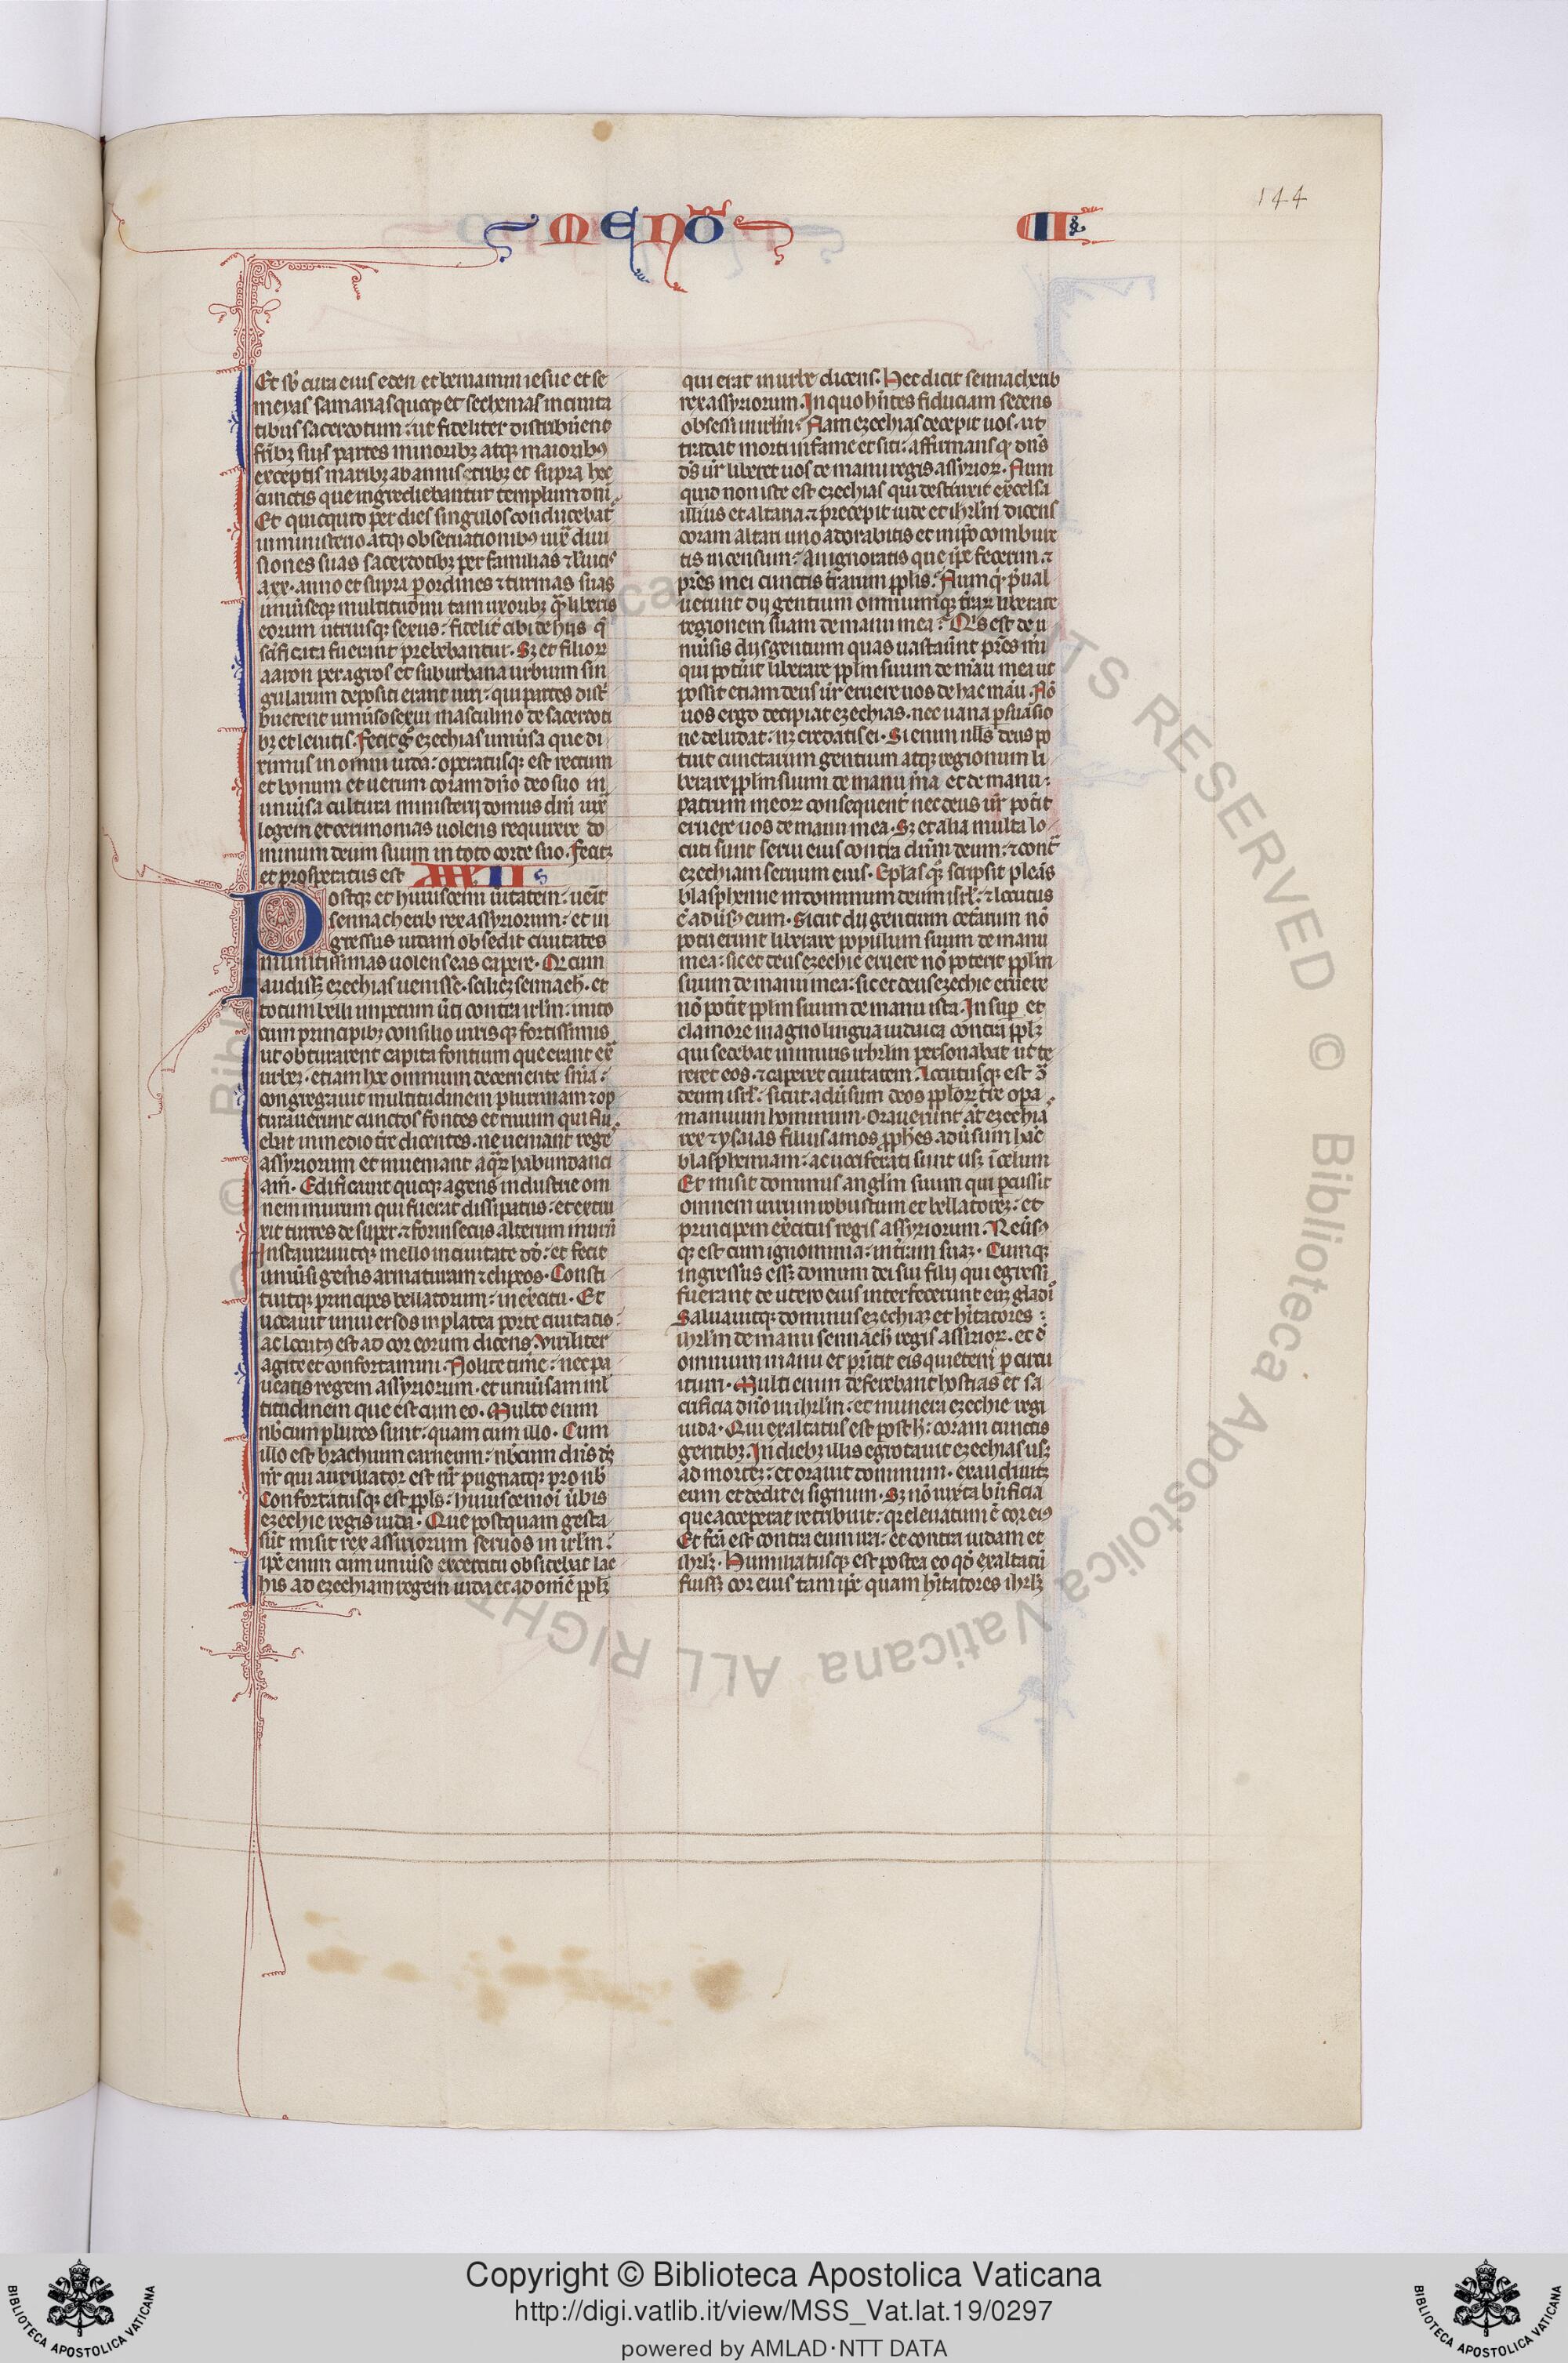 144
MENO II
Et sb̾ cura eius eden et beniamin iesue et se
meyas samarias quoqȝ et sechenias in ciuita
tibus sacerdotum: ut fideliter distribuerent
fr̃ibȝ suis partes minoribȝ atqȝ maioribꝰ
exceptis maribȝ ab annis tribȝ et supra hec
cunctis que ingrediebantur templum dñi.
Et quicquid per dies singulos conducebat̾
in ministerio atqȝ obseruationibꝰ iux̃ diui
siones suas sacerdotibȝ per familias ⁊ leuitis
a xx. anno et supra ꝑ ordines ⁊ turmas suas
uniuerseqȝ multitudini tam uxoribȝ q̃ liberis
eorum utriusqȝ sexus: fidelit̾ cibi de hijs q̃
sc̃ificata fuerant prebebantur. Sȝ et filioꝝ
aaron per agros et suburbana urbium sin
gularum depositi erant uiri: qui partes dist̾
buerent uniũso sexui masculino de sacerdoti
bȝ et leuitis. Fecit g̾ ezechias uniũsa que di
ximus in omni iuda: operatusqȝ est rectum
et bonum et uerum coram dño deo suo in
uniũsa cultura ministerij domus dñi iux̃
legem et cerimonias uolens requirere do
minum deum suum in toto corde suo. Fecitqȝ
et prosperatus est XXXII
Postqȝ et huiuscemi ũitatem: uẽit
sennacherib rex assyriorum: et in
gressus iudam obsedit ciuitates
munitissimas uolens eas capere. Qd̾ cum
audissȝ ezechias uenisse. scilicȝ sennach̾. et
totum belli impetum ũti contra irl̃m: inito
cum principibȝ consilio uirisqȝ fortissimis
ut obturarent capita fontium que erant ex̃
urbeȝ. et iam hoc omnium decernente snĩa:
congregauit multitudinem plurimam ⁊ op
turauerunt cunctos fontes et riuum qui flu
ebat in medio tr̃e dicentes. ne ueniant rege
assyriorum et inueniant aquaꝝ habundanci
am̃. Edificauit quoqȝ agens industrie om
nem murum qui fuerat dissipatus: et extru
xit turres desuper. ⁊ forinsecus alterum murũ
Instaurauitqȝ mello in ciuitate dd̾: et fecit
uniũsi geñis armaturam ⁊ clipeos. Consti
tuitqȝ principes bellatorum: in ex̃citu. Et
uocauit uniuersos in platea porte ciuitatis:
ac locutꝰ est ad cor eorum dicens. Viriliter
agite et confortamini. Nolite time: nec pa
ueatis regem assyriorum. et uniũsam ml̃
titudinem que est cum eo. Multo enim
nb̾cum plures sunt: quam cum illo. Cum
illo est brachium carneum: nb̾cum dñs dȝ
nr̃ qui auxiliator est nr̃ pugnatqȝ pro nb̾
Confortatusqȝ est ppls̃: huiuscemoi ũbis
ezechie regis iuda. Que postquam gesta
sũt misit rex assiriorum seruos in irl̃m:
ip̃e enim cum uniũso excercitu obsidebat lac
his ad ezechiam regem iuda et ad om̃e pplȝ
qui erat in urbe dicens. Hec dicit sennacherib
rex assyriorum. In quo hñtes fiduciam sedens
obsessi in irl̃m: Nam ezechias decepit uos. ut
tr̃adat morti in fame et siti: affirmans q̃ dñs
ds̾ ur̃ liberet uos de manu regis assyrioꝝ. Num
quid non iste est ezechias qui destruxit excelsa
illius et altaria. ⁊ precepit iude et ihrl̃m dicens
coram altari uno adorabitis et in ip̃o combure
tis incensum: An ignoratis que ip̃e fecerim. ⁊
pr̃es mei cunctis tr̃arum pplis̃: Numq̃ p̃ual
uerunt dij gentium omniumqȝ tr̃aꝝ liberare
regionem suam de manu mea: Q̾s est de u
niũsis dijs gentium quas uastaũnt pr̃es mi
qui potũit liberare pplm̃ suum de mãu mea ut
possit etiam deus ur̃ eruere uos de hac mãu. Nõ
uos ergo decipiat ezechias. nec uana ꝑsuasio
ne deludat: nȝ credatis ei. Si enim nlls̾ deus po
tuit cunctarum gentium atqȝ regionum li
berare pplm̃ suum de manu m̃a et de manu:
patrum meoꝝ consequent̾ nec deus ur̃ potẽit
eruere uos de manu mea. Sȝ et alia multa lo
cuti sunt serui eius contra dñm deum: ⁊ cont̾
ezechiam seruum eius. Eplasqȝ scripsit pleãs
blasphemie in dominum deum isrl̃: ⁊ locutus
ẽ adũsȝ eum. Sicut dij gentium cet̾arum nõ
potuerunt liberare populum suum de manu
mea: sic et deus ezechie eruere nõ poterit pplm̃
suum de manu mea: sic et deus ezechie eruere
nõ potẽit pplm̃ suum de manu ista. Insuꝑ et
clamore magno lingua iudaica contra pplȝ
qui sedebat in muris irhrl̃m personabat ut te
reret eos. ⁊ caperet ciuitatem. Locutusqȝ est 9̾
deum isrl̃: sicut adũsum deos pploꝝ tr̃e opa.
manuum hominum. Orauerunt at̾ ezechia
rex ⁊ ysaias filius amos pphes̃. adũsum hãc
blasphemiam: ac uociferati sunt usqȝ ĩ celum
Et misit dominus anglm̃ suum qui ꝑcussit
omnem uirum robustum et bellatorẽȝ: et
principem ex̃citus regis assyriorum. Reũsꝰ
qȝ est cum ignominia: in tr̃am suaȝ. Cumqȝ
ingressus essȝ domum dei sui filij qui egressi
fuerant de utero eius interfecerunt euȝ gladiõ
Saluauitqȝ dominus ezechiaȝ et hĩtatores:
ihrl̃m de manu sennach̾ regis assirioꝝ. et d̾
omnium manu et pr̃stitit eis quietem ꝑ circu
itum. Multi enim deferebant hostias et sa
crificia dño in ihrl̃m: et munera ezechie regi
iuda. Qui exaltatus est post h̾: coram cunctis
gentibȝ. In diebȝ illis egrotauit ezechias usqȝ
ad morteȝ: et orauit dominum. exaudiuitqȝ
eum et dedit ei signum. Sȝ nõ iuxta bñficia
que acceperat retribuit: qr̃ eleuatum ẽ cor eiꝰ
Et fc̃a est contra eum ira: et contra iudam et
ihrlȝ. Humiliatusqȝ est postea eo qd̾ exaltatũ
fuissȝ cor eius tam ip̃e quam hĩtatores ihrlȝ
Copyright © Biblioteca Apostolica Vaticana
http://digi.vatlib.it/view/MSS_Vat.lat.19/0297
powered by AMLAD·NTT DATA
BIBLIOTECA APOSTOLICA VATICANA
BIBLIOTECA APOSTOLICA VATICANA
© Biblioteca Apostolica Vaticana ALL RIGHTS RESERVED